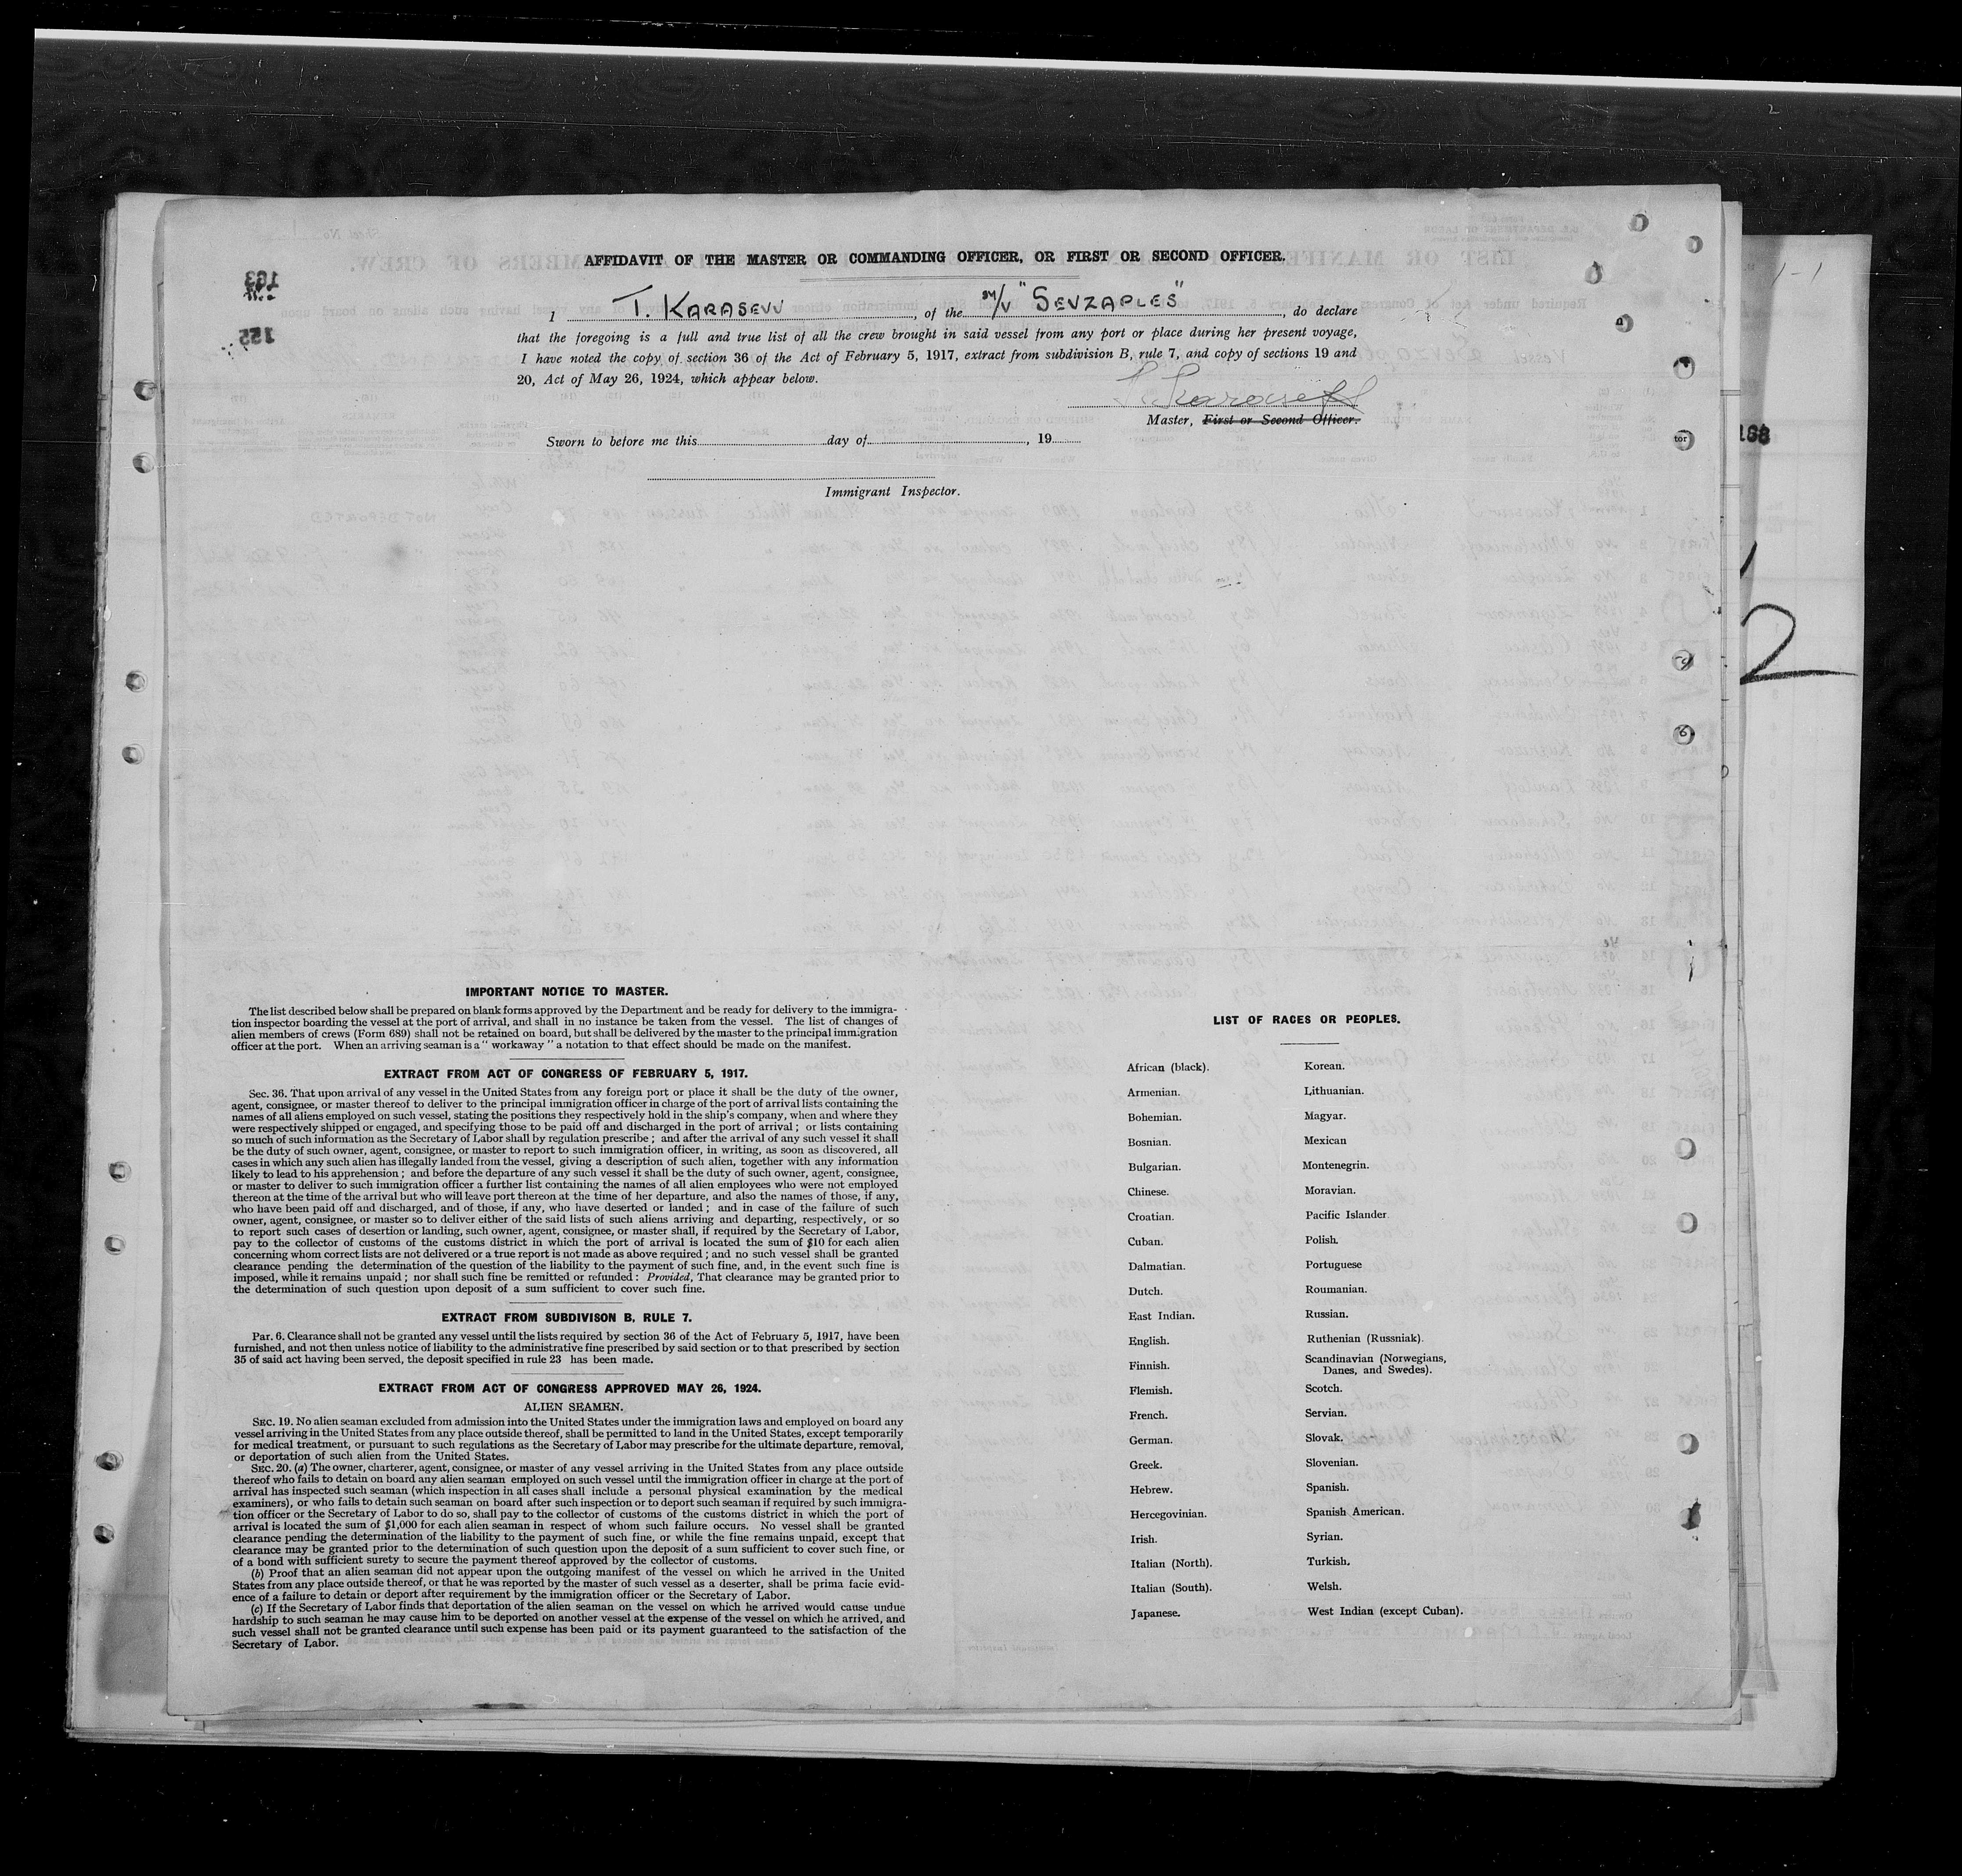 AFFIDAVIT OF THE MASTER OR COMMANDING OFFICER, OR FIRST OR SECOND OFFICER.
I T. KARASEVV, of the M/V "SEVZAPLES", do declare
that the foregoing is a full and true list of all the crew brought in said vessel from any port or place during her present voyage,
I have noted the copy of section 36 of the Act of February 5, 1917, extract from subdivision B, rule 7, and copy of sections 19 and
20, Act of May 26, 1924, which appear below.
Master, First or Second Officer.
Sworn to before me this day of , 19
Immigrant Inspector.
IMPORTANT NOTICE TO MASTER.
The list described below shall be prepared on blank forms approved by the Department and be ready for delivery to the immigra-
tion inspector boarding the vessel at the port of arrival, and shall in no instance be taken from the vessel. The list of changes of
alien members of crews (Form 689) shall not be retained on board, but shall be delivered by the master to the principal immigration
officer at the port. When an arriving seaman is a " workaway " a notation to that effect should be made on the manifest.
EXTRACT FROM ACT OF CONGRESS OF FEBRUARY 5, 1917.
Sec. 36. That upon arrival of any vessel in the United States from any foreign port or place it shall be the duty of the owner,
agent, consignee, or master thereof to deliver to the principal immigration officer in charge of the port of arrival lists containing the
names of all aliens employed on such vessel, stating the positions they respectively hold in the ship's company, when and where they
were respectively shipped or engaged, and specifying those to be paid off and discharged in the port of arrival ; or lists containing
so much of such information as the Secretary of Labor shall by regulation prescribe ; and after the arrival of any such vessel it shall
be the duty of such owner, agent, consignee, or master to report to such immigration officer, in writing, as soon as discovered, all
cases in which any such alien has illegally landed from the vessel, giving a description of such alien, together with any information
likely to lead to his apprehension ; and before the departure of any such vessel it shall be the duty of such owner, agent, consignee,
or master to deliver to such immigration officer a further list containing the names of all alien employees who were not employed
thereon at the time of the arrival but who will leave port thereon at the time of her departure, and also the names of those, if any,
who have been paid off and discharged, and of those, if any, who have deserted or landed ; and in case of the failure of such
owner, agent, consignee, or master so to deliver either of the said lists of such aliens arriving and departing, respectively, or so
to report such cases of desertion or landing, such owner, agent, consignee, or master shall, if required by the Secretary of Labor,
pay to the collector of customs of the customs district in which the port of arrival is located the sum of $10 for each alien
concerning whom correct lists are not delivered or a true report is not made as above required ; and no such vessel shall be granted
clearance pending the determination of the question of the liability to the payment of such fine, and, in the event such fine is
imposed, while it remains unpaid ; nor shall such fine be remitted or refunded : Provided, That clearance may be granted prior to
the determination of such question upon deposit of a sum sufficient to cover such fine.
EXTRACT FROM SUBDIVISON B, RULE 7.
Par. 6. Clearance shall not be granted any vessel until the lists required by section 36 of the Act of February 5, 1917, have been
furnished, and not then unless notice of liability to the administrative fine prescribed by said section or to that prescribed by section
35 of said act having been served, the deposit specified in rule 23 has been made.
EXTRACT FROM ACT OF CONGRESS APPROVED MAY 26, 1924.
ALIEN SEAMEN.
SEC. 19. No alien seaman excluded from admission into the United States under the immigration laws and employed on board any
vessel arriving in the United States from any place outside thereof, shall be permitted to land in the United States, except temporarily
for medical treatment, or pursuant to such regulations as the Secretary of Labor may prescribe for the ultimate departure, removal,
or deportation of such alien from the United States.
SEC. 20. (a) The owner, charterer, agent, consignee, or master of any vessel arriving in the United States from any place outside
thereof who fails to detain on board any alien seaman employed on such vessel until the immigration officer in charge at the port of
arrival has inspected such seaman (which inspection in all cases shall include a personal physical examination by the medical
examiners), or who fails to detain such seaman on board after such inspection or to deport such seaman if required by such immigra-
tion officer or the Secretary of Labor to do so, shall pay to the collector of customs of the customs district in which the port of
arrival is located the sum of $1,000 for each alien seaman in respect of whom such failure occurs. No vessel shall be granted
clearance pending the determination of the liability to the payment of such fine, or while the fine remains unpaid, except that
clearance may be granted prior to the determination of such question upon the deposit of a sum sufficient to cover such fine, or
of a bond with sufficient surety to secure the payment thereof approved by the collector of customs.
(b) Proof that an alien seaman did not appear upon the outgoing manifest of the vessel on which he arrived in the United
States from any place outside thereof, or that he was reported by the master of such vessel as a deserter, shall be prima facie evid-
ence of a failure to detain or deport after requirement by the immigration officer or the Secretary of Labor.
(c) If the Secretary of Labor finds that deportation of the alien seaman on the vessel on which he arrived would cause undue
hardship to such seaman he may cause him to be deported on another vessel at the expense of the vessel on which he arrived, and
such vessel shall not be granted clearance until such expense has been paid or its payment guaranteed to the satisfaction of the
Secretary of Labor.
LIST OF RACES OR PEOPLES.
African (black).
Armenian.
Bohemian.
Bosnian.
Bulgarian.
Chinese.
Croatian.
Cuban.
Dalmatian.
Dutch.
East Indian.
English.
Finnish.
Flemish.
French.
German.
Greek.
Hebrew.
Hercegovinian.
Irish.
Italian (North).
Italian (South).
Japanese.
Korean.
Lithuanian.
Magyar.
Mexican
Montenegrin.
Moravian.
Pacific Islander.
Polish.
Portuguese
Roumanian.
Russian.
Ruthenian (Russniak).
Scandinavian (Norwegians,
Danes, and Swedes).
Scotch.
Servian.
Slovak.
Slovenian.
Spanish.
Spanish American.
Syrian.
Turkish.
Welsh.
West Indian (except Cuban).
168
2